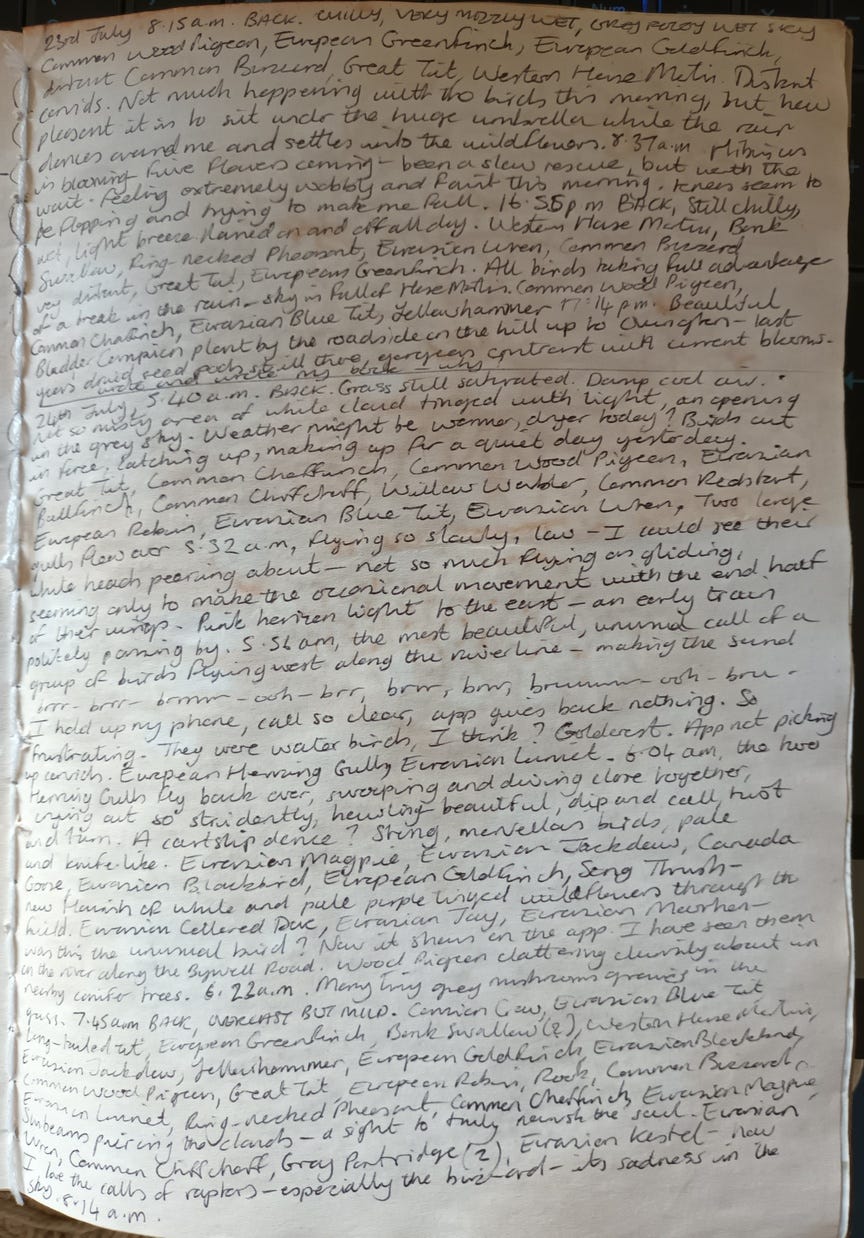 23rd July 8.15a.m. BACK. CHILLY, VERY MIZZLY WET, GREY FOGGY WET SKY
Common Wood Pigeon, European Greenfinch, European Goldfinch,
distant Common Buzzard, Great Tit, Western House Martin. Distant
corvids. Not much happening with the birds this morning, but how
pleasant it is to sit under the huge umbrella while the rain
dances around me and settles into the wildflowers. 8.37a.m Hibiscus
is blooming five flowers coming - been a slow rescue, but worth the
wait. Feeling extremely wobbly and faint this morning. Knees seem to
be flopping and trying to make me fall. 16.55pm BACK, Still chilly,
wet, light breeze. Rained on and off all day. Western House Martin, Bank
Swallow, Ring-necked Pheasant, Eurasian Wren, Common Buzzard
very distant, Great Tit, European Greenfinch. All birds taking full advantage
of a break in the rain - sky is full of House Martins. Common Wood Pigeon,
Common Chaffinch, Eurasian Blue Tit, Yellowhammer 17:14pm. Beautiful
Bladder Campion plant by the roadside on the hill up to Ovington - last
years dried seed pods still there, gorgeous contrast with current blooms -
wrote and wrote my book
24th July, 5.40a.m. BACK. Grass still saturated. Damp cool air.
Not so misty area of white cloud tinged with light, an opening
in the grey sky. Weather might be warmer, dryer today? Birds out
in force, catching up, making up for a quiet day yesterday.
Great Tit, Common Chaffinch, Common Wood Pigeon, Eurasian
Bullfinch, Common Chiffchaff, Willow Warbler, Common Redstart,
European Robin, Eurasian Blue Tit, Eurasian Wren, Two large
gulls flew over 5.32a.m, flying so slowly, low - I could see their
white heads peering about - not so much flying as gliding,
seeming only to make the occasional movement with the end half
of their wings. Pink horizon light to the east - an early train
politely passing by. 5.56am, the most beautiful, unusual call of a
group of birds flying west along the river line - making the sound
brrr - brrr - brrrrr - ooh - brr, brrr, brrr, bruuuuu - ooh - bru -
I hold up my phone, call so clear, app gives back nothing. So
frustrating. They were water birds, I think? Goldcrest. App not picking
up corvids. European Herring Gull, Eurasian Linnet. 6.04am, the two
Herring Gulls fly back over, swooping and diving close together,
crying out so stridently, howling beautiful, dip and call, twist
and turn. A courtship dance? Strong, marvellous birds, pale
and knife-like. Eurasian Magpie, Eurasian Jackdaw, Canada
Goose, Eurasian Blackbird, European Goldfinch, Song Thrush -
new flourish of white and pale purple tinged wildflowers through the
field. Eurasian Collared Dove, Eurasian Jay, Eurasian Moorhen -
was this the unusual bird? Now it shows on the app. I have seen them
on the river along the Bywell Road. Wood Pigeon clattering clumsily about in
nearby conifer trees. 6.22a.m. Many tiny grey mushrooms growing in the
grass. 7.45am BACK, OVERCAST BUT MILD. Carrion Crow, Eurasian Blue Tit
Long-tailed tit, European Greenfinch, Bank Swallow (2), Western House Martin,
Eurasian Jackdaw, Yellowhammer, European Goldfinch, Eurasian Blackbird,
Common Wood Pigeon, Great Tit, European Robin, Rook, Common Buzzard,
Eurasian Linnet, Ring-necked Pheasant, Common Chaffinch, Eurasian Magpie,
Sunbeams piercing the clouds - a sight to truly nourish the soul. Eurasian
Wren, Common Chiffchaff, Gray Partridge (2), Eurasian Kestrel - how
I love the calls of raptors - especially the buzzard - its sadness in the
sky. 8.14a.m.